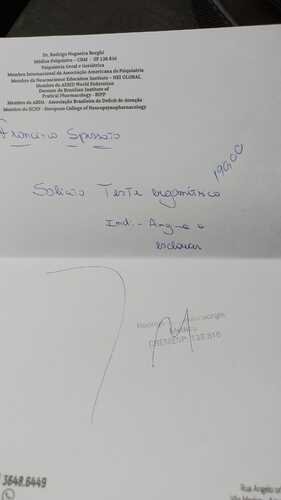 Dr. Rodrigo Nogueira Borghi
Médico Psiquiatra - CRM - SP 128.816
Psiquiatria Geral e Geriátrica
Membro Internacional da Associação Americana de Psiquiatria
Membro da Neuroscience Education Institute - NEI GLOBAL
Member da ADHD World Federation
Docente do Brazilian Institute of
Pratical Pharmacology - BIPP
Membro da ABDA - Associação Brasileira de Déficit de Atenção
Membro do ECNP - European College of Neuropsychopharmacology
Francisco Sposato
190,00
Solicito Teste ergométrico
Ind: - Angina a
esclarecer
Rodrigo Borghi
Médico
CREMESP: 128.816
3648.6449
Rua Angelo
Vila